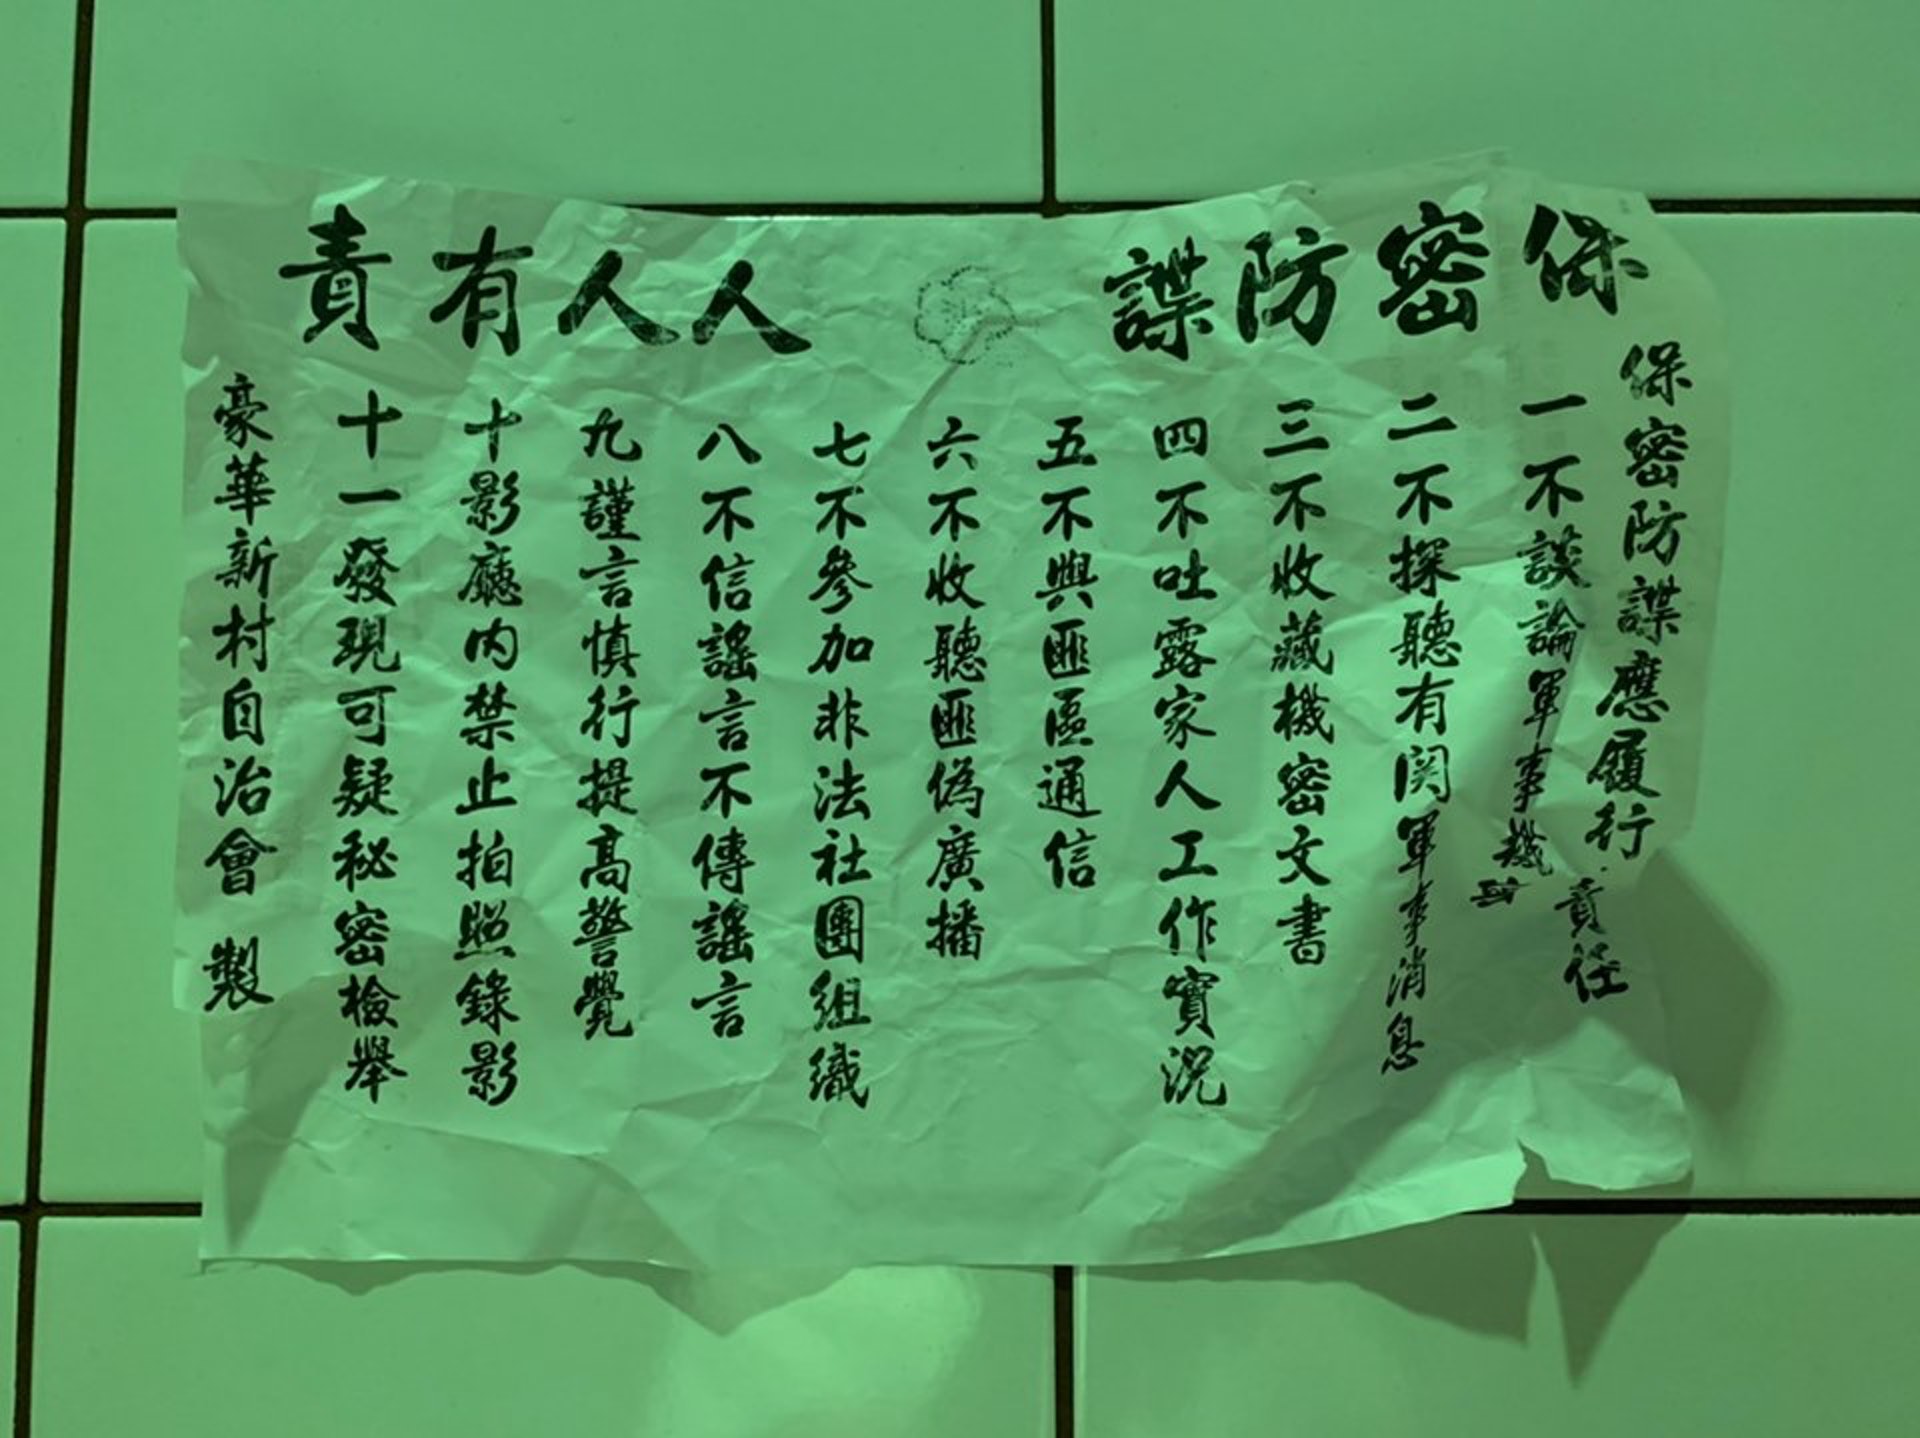 保密防諜 人人有責
保密防諜應履行責任
一不談論軍事機密
二不探聽有関軍事消息
三不收藏機密文書
四不吐露家人工作實況
五不與匪區通信
六不收聽匪偽廣播
七不參加非法社團組織
八不信謠言不傳謠言
九謹言慎行提高警覺
十影廳内禁止拍照錄影
十一發現可疑秘密檢舉
豪華新村自治會 製